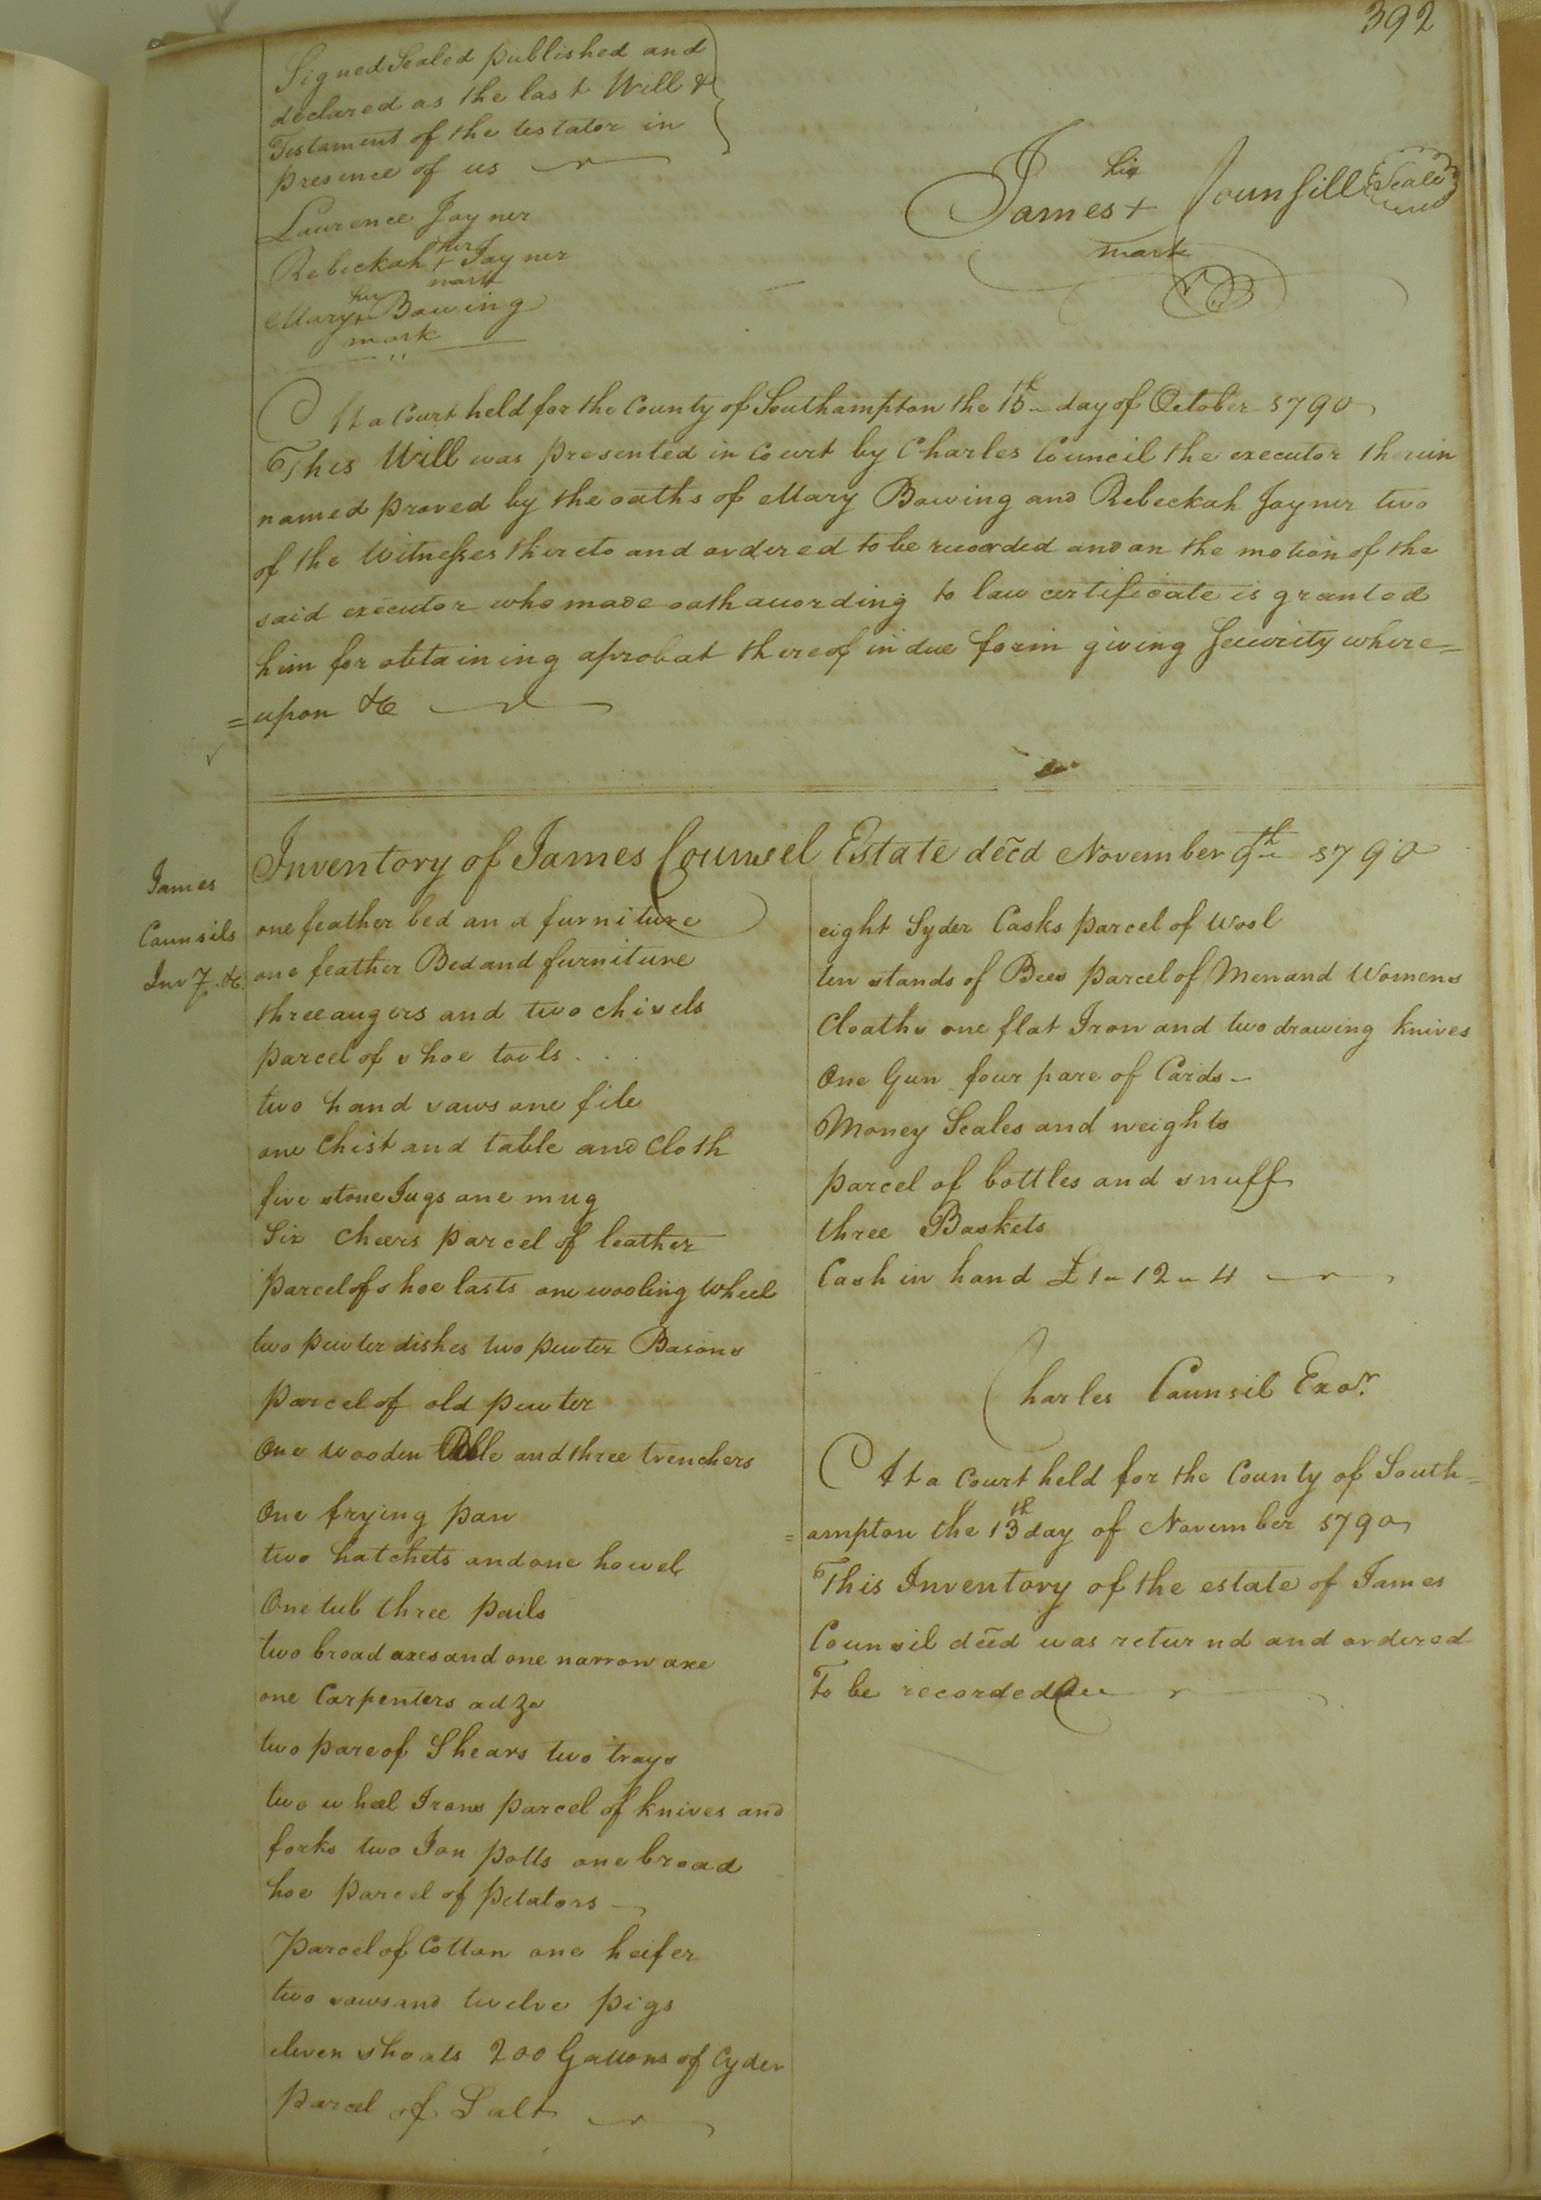 392
Signed Sealed published and
declared as the last Will &
Testament of the testator in
presence of us
Laurence Joyner
her
Rebeckah + Joyner
mark
her
Mary + Bowing
mark
his
James + Counsill Seale
mark
At a Court held for the County of Southampton the 15th day of October 1790
This Will was presented in Court by Charles Council the executor therein
named proved by the oaths of Mary Bowing and Rebeckah Joyner two
of the Witnesses thereto and ordered to be recorded and on the motion of the
said executor who made oath according to law certificate is granted
him for obtaining a probat thereof in due form giving Security where=
=upon &c
James
Counsils
Inv Y &c.
Inventory of James Counsel Estate decd November 9th 1790
one feather bed and furniture
one feather Bed and furniture
three augers and two chisels
parcel of shoe tools . . .
two hand saws one file
one Chist and table and Cloth
five stone Jugs one mug
Six Cheers parcel of leather
Parcel of shoe lasts one wooling Wheel
two pewter dishes two pewter Basons
parcel of old pewter
One wooden and three trenchers
One frying pan
two hatchets and one howel
One tub three pails
two broad axes and one narrow axe
one Carpenters adze
two pare of Shears two trays
two wheel Irons parcel of knives and
forks two Ion potts one broad
hoe parcel of petators
Parcel of Cotton one heifer
two sows and twelve pigs
eleven shoats 200 Gallons of Cyder
parcel of Salt
eight Syder Casks parcel of Wool
ten stands of Bees parcel of Men and Womens
Cloaths one flat Iron and two drawing knives
One Gun four pare of Cards
Money Scales and weights
parcel of bottles and snuff
three Baskets
Cash in hand £1 " 12 " 4
Charles Counsil Exor.
At a Court held for the County of South=
=ampton the 13th day of November 1790
This Inventory of the estate of James
Counsil decd was returnd and ordered
To be recorded